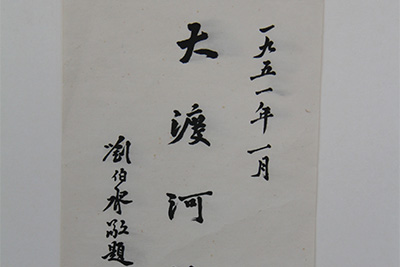 一九五一年一月
天渡河
劉伯承敬題